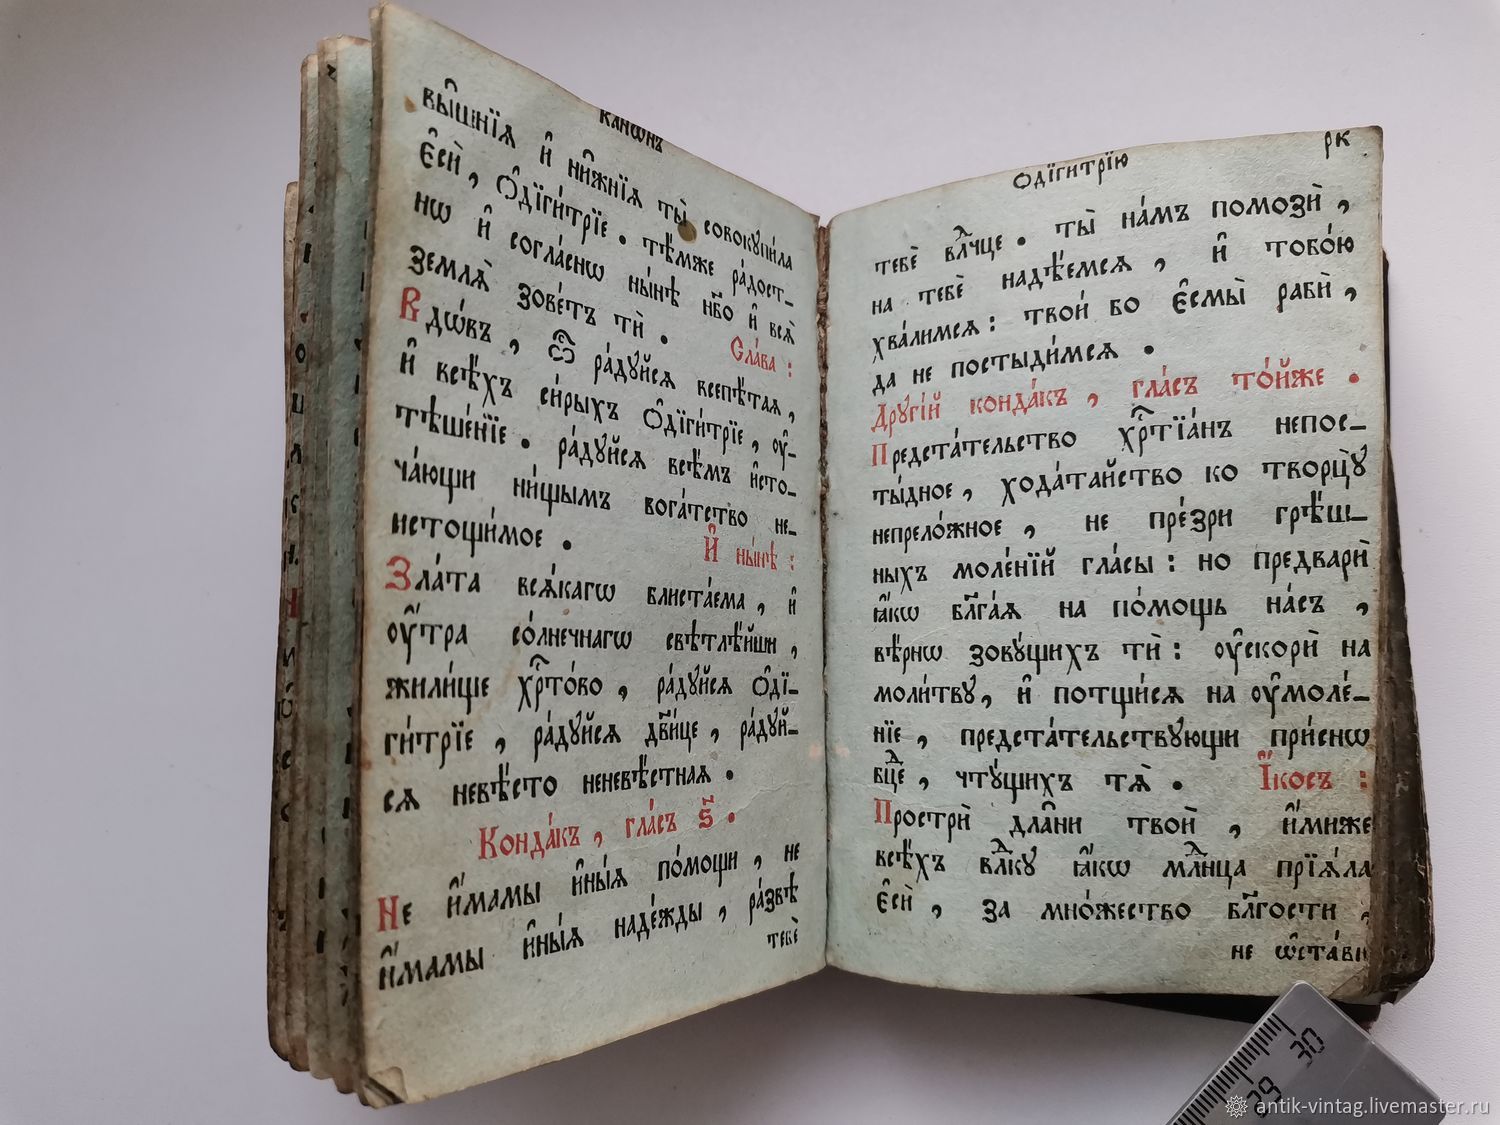 канѡнъ
вы̑шнїѧ и҆ ни̑жнїѧ ты̀ совокупи́ла
є҆сѝ, Ѻ҆дїги́трїе. тѣ́мже ра́дост_
нѡ и҆ согла́снѡ ны́нѣ нб҃о и҆ всѧ̀
землѧ̀ зове́тъ тѝ. Сла́ва:
Вдѡ́въ, Ѿ ра́дуйсѧ всепѣ́таѧ,
и҆ всѣ́хъ си́рыхъ Ѻ҆дїги́трїе, ᲂу҆_
тѣше́нїе. ра́дуйсѧ всѣ́мъ и҆сто_
ча́ющи ни́щымъ бога́тство не_
истощи́мое. И҆ ны́нѣ:
Зла́та всѧ́кагѡ блиста́ема, и҆
ᲂу҆́тра со́лнечнагѡ свѣтлѣ́йши,
жили́ще хрⷭ҇то́во, ра́дуйсѧ Ѻ҆дї_
ги́трїе, ра́дуйсѧ дв҃и́це, ра́дуй_
сѧ невѣ́сто неневѣ́стнаѧ.
Конда́къ, гла́съ ѕ҃.
Не и҆́мамы и҆ны́ѧ по́мощи, не
и҆́мамы и҆ны́ѧ наде́жды, ра́звѣ
тебѐ
ѻдїгитрїю рк
тебѐ влⷣчце. ты̀ на́мъ помозѝ,
на тебѐ надѣ́емсѧ, и҆ тобо́ю
хва́лимсѧ: твои́ бо є҆смы̀ рабѝ,
да не постыди́мсѧ.
Другі́й конда́къ, гла́съ то́йже.
Предста́тельство хрⷭ҇тїа́нъ непос_
ты́дное, хода́тайство ко творцꙋ̀
непрело́жное, не пре́зри грѣ́ш_
ныхъ моле́нїй гла́сы: но предварѝ
ꙗ҆́кѡ бл҃га́ѧ на по́мощь на́съ,
вѣ́рнѡ зовꙋ́щихъ тѝ: ᲂу҆скорѝ на
моли́твꙋ, и҆ потщи́сѧ на ᲂу҆моле́_
нїе, предста́тельствꙋющи при́снѡ
бцⷣе, чтꙋ́щихъ тѧ̀. І҆́косъ:
Прострѝ дла̑ни твоѝ, и҆́миже
всѣ́хъ влⷣкꙋ ꙗ҆́кѡ млⷣнца прїѧ́ла
є҆сѝ, за мно́жество бл҃гости,
не ѡ҆ста́ви
30
29
antik-vintag.livemaster.ru